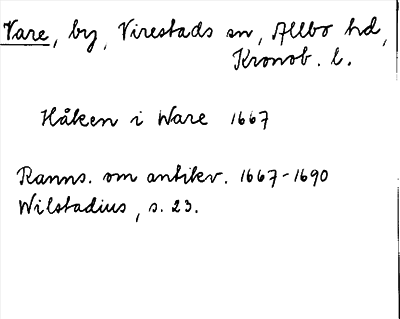 Vare, by, Virestads sn, Allbo hd,
Kronob. l.
Håken i Ware 1667
Ranns. om antikv. 1667-1690
Wilstadius, s. 23.